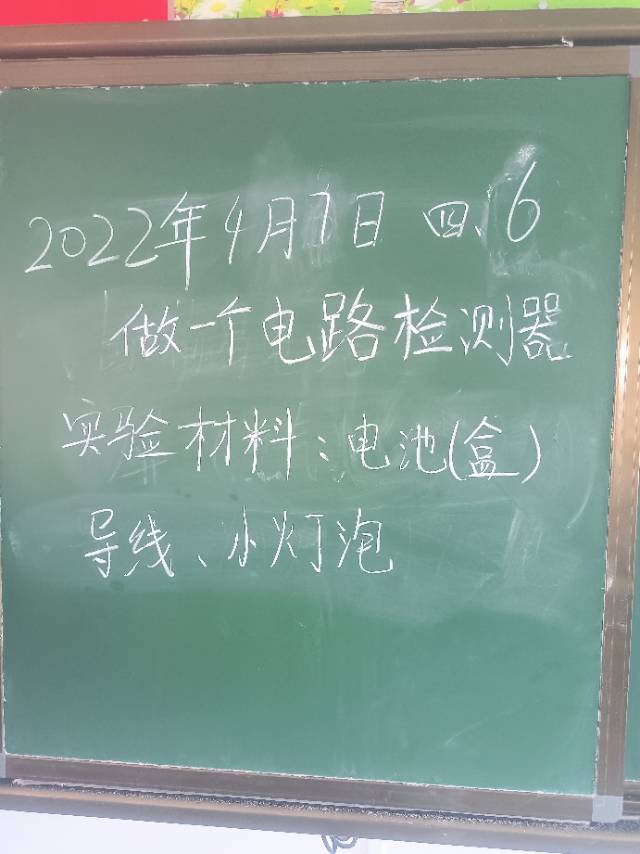 2022年4月7日 四、6
做一个电路检测器
实验材料：电池(盒)
导线、小灯泡